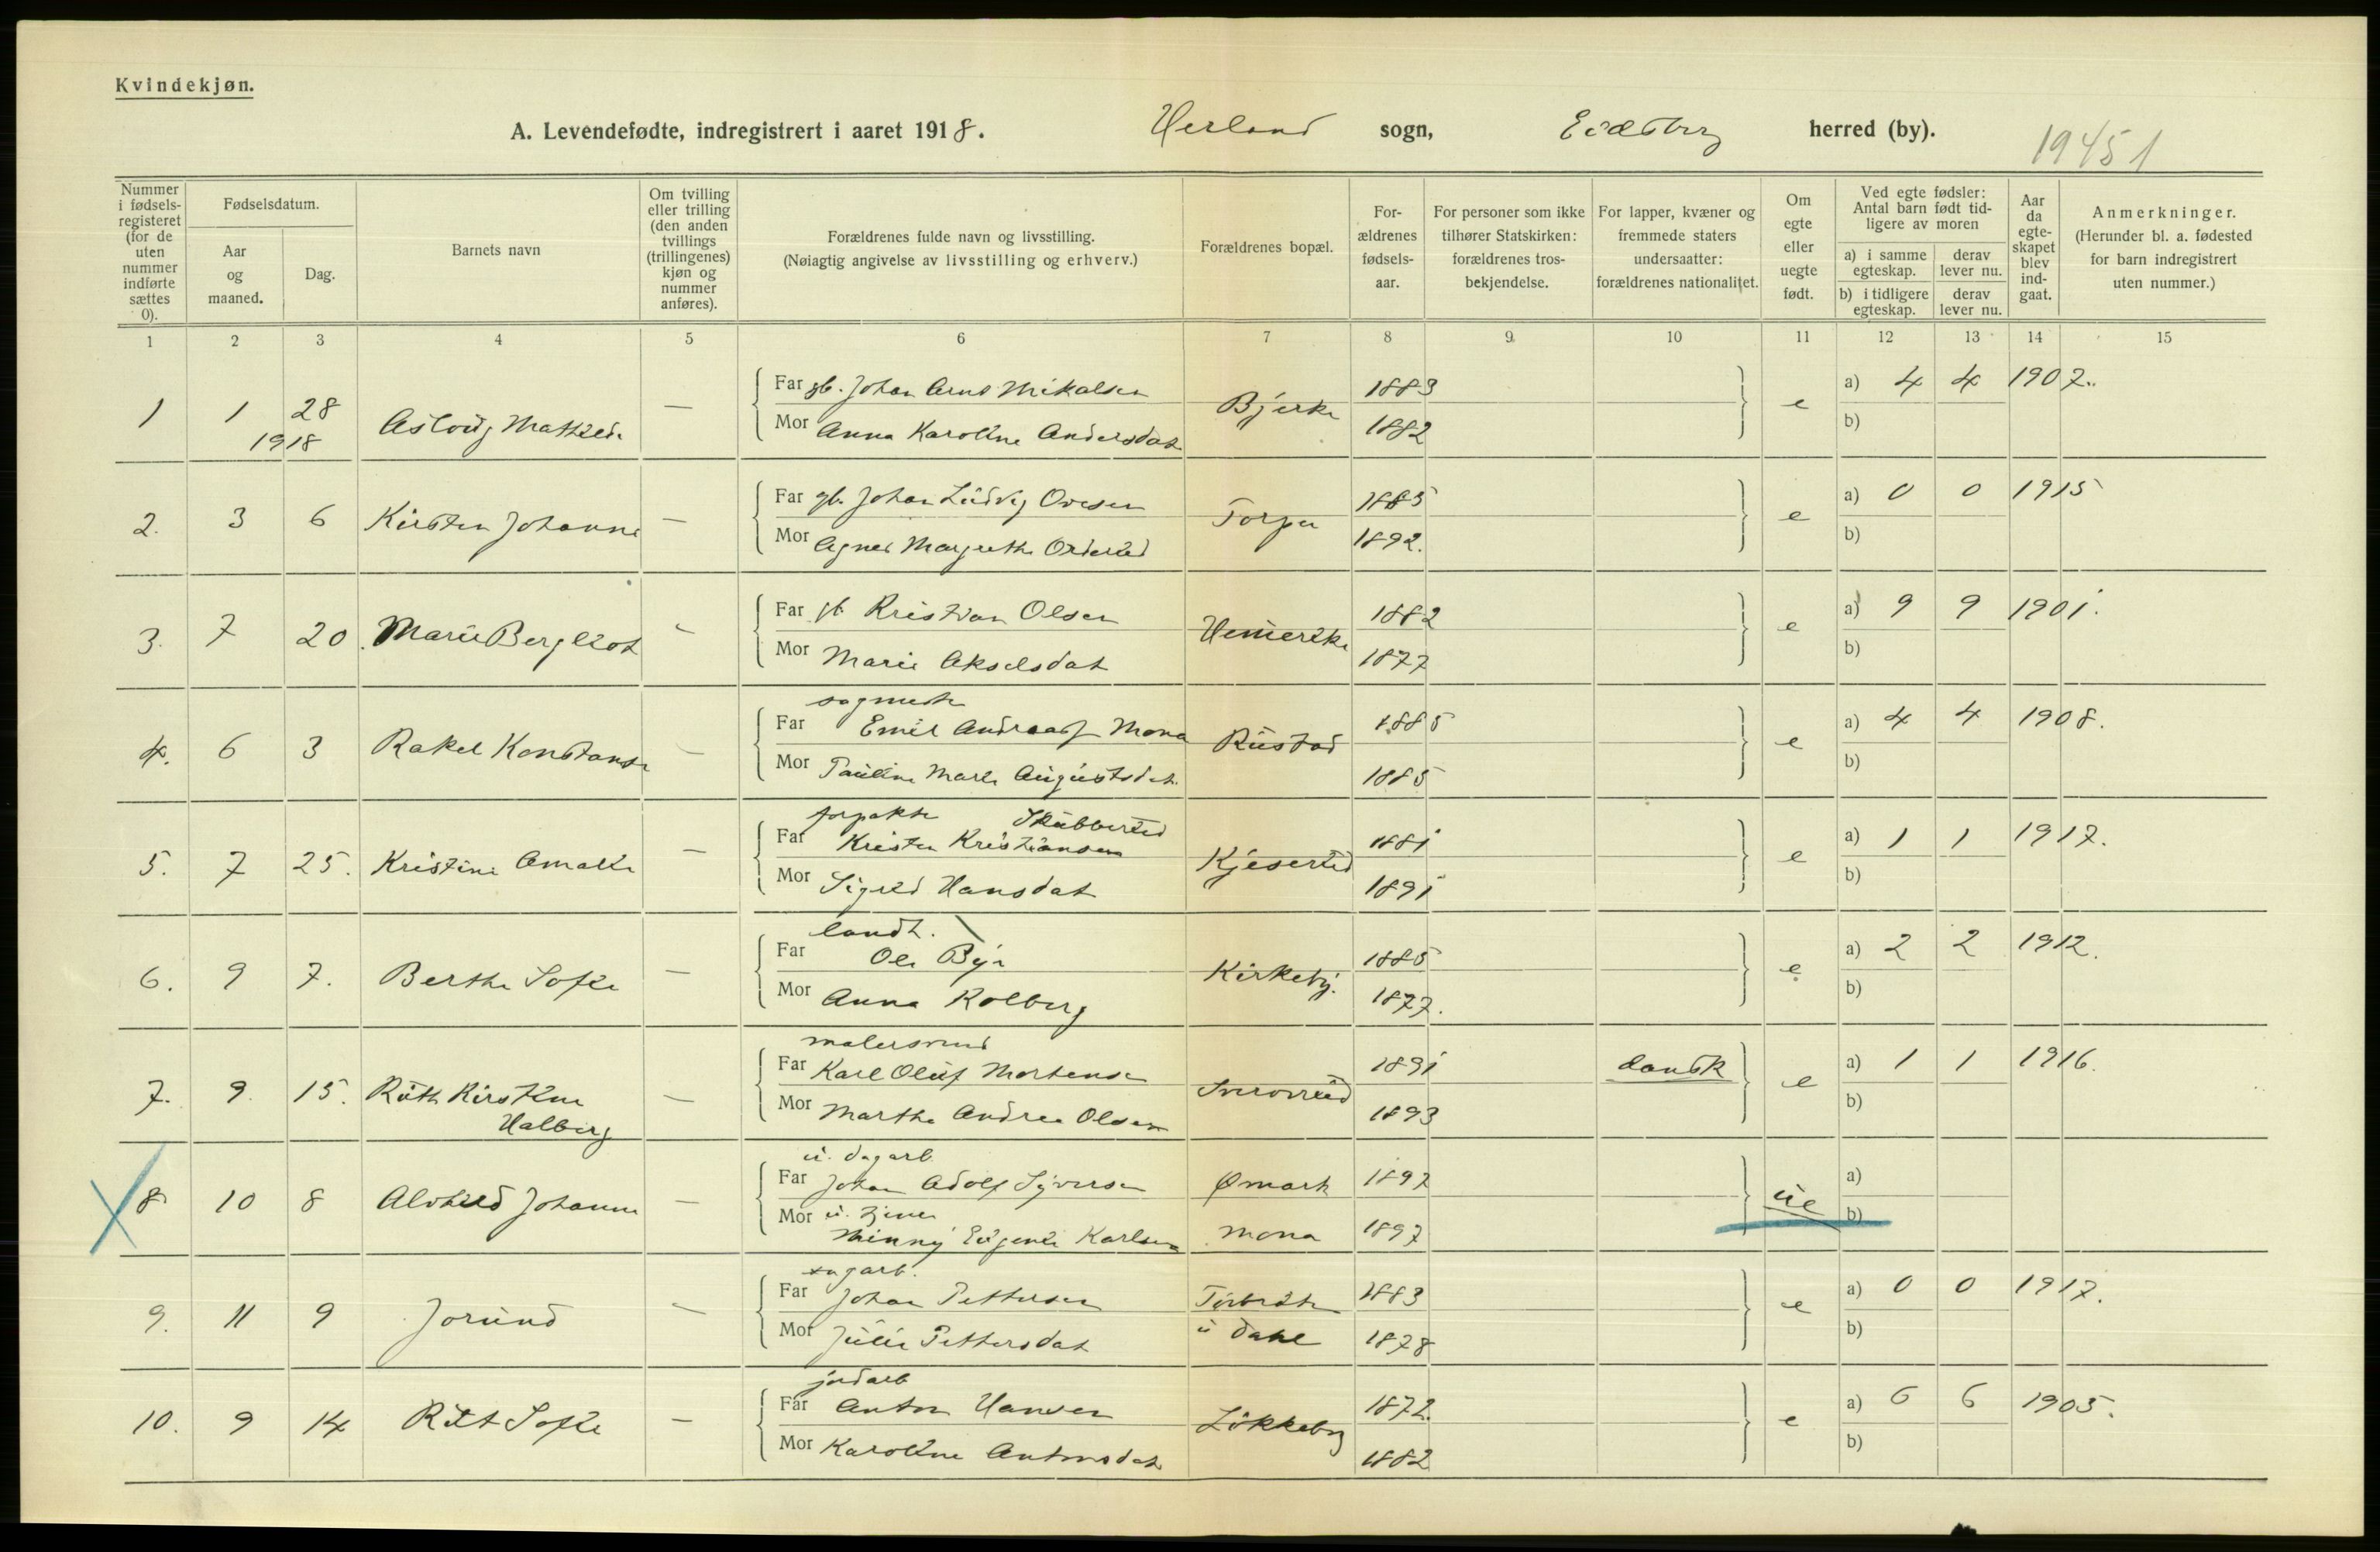 Kvindekjøn.
A. Levendefødte, indregistrert i aaret 1918. Herland sogn, Eidsberg herred (by). 19451
Nummer i fødsels-registeret (for de uten nummer indførte sættes 0).
Fødselsdatum.
Aar og maaned.
Dag.
Barnets navn
Om tvilling eller trilling (den anden tvillings (trillingenes) kjøn og nummer anføres).
Forældrenes fulde navn og livsstilling.
(Nøiagtig angivelse av livsstilling og erhverv.)
Forældrenes bopæl.
For-ældrenes fødsels-aar.
For personer som ikke tilhører Statskirken: forældrenes tros-bekjendelse.
For lapper, kvæner og fremmede staters undersaatter: forældrenes nationalitet.
Om egte eller uegte født.
Ved egte fødsler: Antal barn født tid-ligere av moren
a) i samme egteskap.
derav lever nu.
b) i tidligere egteskap.
derav lever nu.
Aar da egte-skapet blev ind-gaat.
Anmerkninger.
(Herunder bl. a. fødested for barn indregistrert uten nummer.)
1 2 3 4 5 6 7 8 9 10 11 12 13 14 15
1 1 28 1918 Aslaug Mathilde — Far gb. Johan Arnt Mikalsen Bjerke 1883 e a) 4 4 1907.
Mor Anna Karoline Andersdat 1882 b)
2. 3 6 Kirsten Johanne — Far gb. Johan Ludvig Ovesen Torper 1885 e a) 0 0 1915
Mor Agnes Margrethe Orderud 1892. b)
3. 7 20. Marie Bergliot — Far gb Kristian Olsen 1882 e a) 9 9 1901.
Mor Marie Akselsdat 1877 b)
4. 6 3 Rakel Konstanse — sagmester
Far Emil Andreas Mona Rustad 1885 e a) 4 4 1908.
Mor Pauline Marie Augustsdat. 1885 b)
5. 7 25. Kristine Amalie — forpakter Skubberud
Far Krister Kristiansen Kjeserud 1881 e a) 1 1 1917.
Mor Sigrid Hansdat 1891 b)
6. 9 7. Berthe Sofie — landh.
Far Ole Bye Kirkeby. 1885 e a) 2 2 1912.
Mor Anna Kolberg 1877. b)
7. 9. 15. Ruth Kirstine Halberg — malersvend
Far Karl Oluf Mortensen 1891 dansk e a) 1 1 1916.
Mor Marthe Andrea Olsen 1893 b)
8 10 8 Alvhild Johanne — u. dagarb.
Far Johan Adolf Syversen Ømark 1897 ue a)
Mor u. tjener
Minny Eugenie Karlsen Mona 1897 b)
9. 11 9 Jorund — sagarb.
Far Johan Pettersen 1883 e a) 0 0 1917.
Mor Julie Pettersdat u Dahl 1878 b)
10. 9 14 Rut Sofie — jordarb
Far Anton Hansen Løkkeberg 1872. e a) 6 6 1905.
Mor Karoline Antonsdat 1882 b)